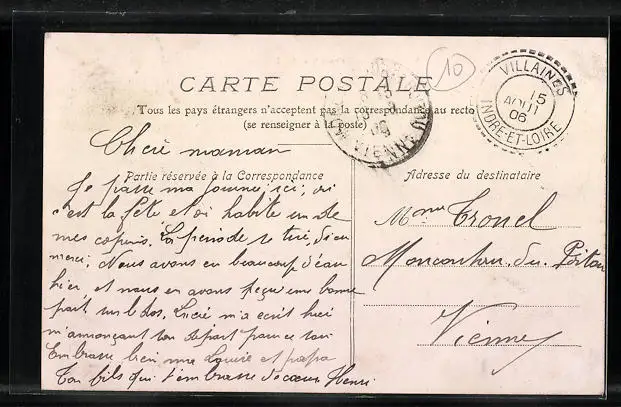 10
VILLAINES
15
AOUT
06
INDRE-ET-LOIRE
CARTE POSTALE
Tous les pays étrangers n'acceptent pas la correspondance au recto
(se renseigner à la poste)
VIENNE
Chère maman
Partie réservée à la Correspondance
Adresse du destinataire
Je passe ma journée ici, où
c'est la fête et où habite un de
mes copains. La période se tire, Dieu
merci, Nous avons eu beaucoup d'eau
hier et nous en avons reçu une bonne
part sur le dos. m'a écrit hier
m'annonçant ton départ pour ce soir
Embrasse bien une Louise et papa
Ton fils qui t'embrasse de cœur Henri
Mme Tronel
Moncontour du Poitou
Vienne